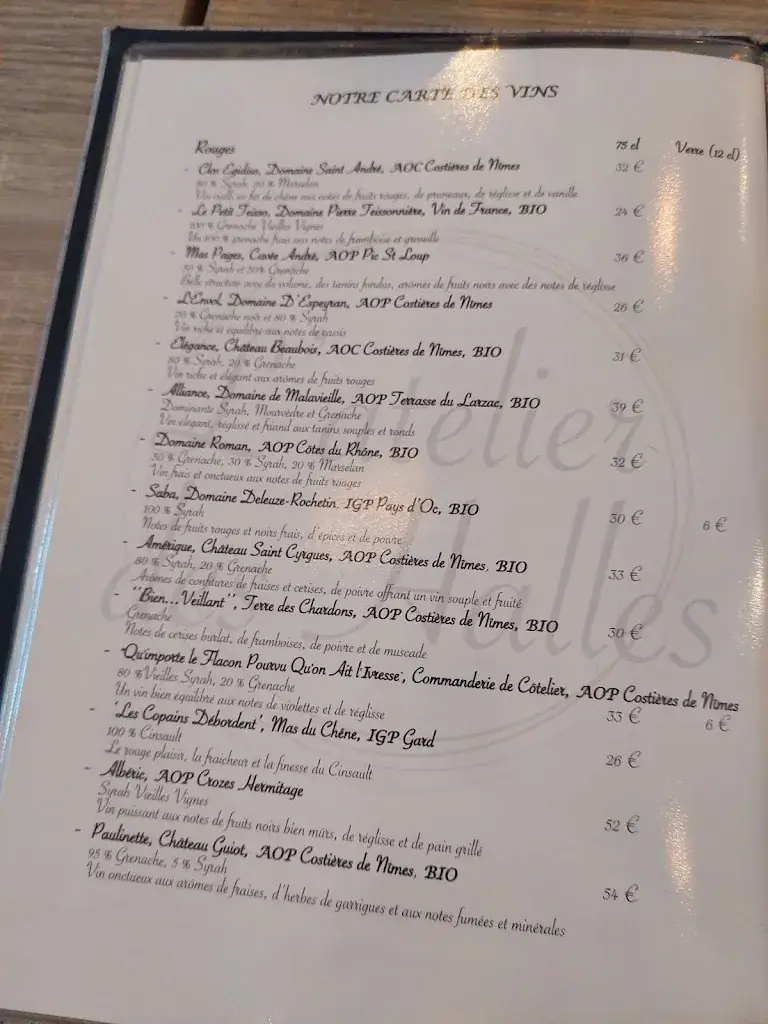 NOTRE CARTE DES VINS
Rouges 75 cl Verre (12 cl)
- Clos Egidius, Domaine Saint André, AOC Costières de Nîmes 32 €
80 % Syrah, 20 % Marselan
Vin vieilli en fût de chêne aux notes de fruits rouges, de pruneaux, de réglisse et de vanille
- Le Petit Teisso, Domaine Pierre Teissonnière, Vin de France, BIO 24 €
100 % Grenache Vieilles Vignes
Un 100 % grenache frais aux notes de framboise et groseille
- Mas Pages, Cuvée André, AOP Pic St Loup 36 €
50 % Syrah et 50% Grenache
Belle structure avec du volume, des tanins fondus, arômes de fruits noirs avec des notes de réglisse
- L'Envol, Domaine D'Espeyran, AOP Costières de Nîmes 26 €
20 % Grenache noir et 80 % Syrah
Vin riche et équilibré aux notes de cassis
- Elégance, Château Beaubois, AOC Costières de Nîmes, BIO 31 €
80 % Syrah, 20 % Grenache
Vin riche et élégant aux arômes de fruits rouges
- Alliance, Domaine de Malavieille, AOP Terrasse du Larzac, BIO 39 €
Dominante Syrah, Mourvèdre et Grenache
Vin élégant, réglissé et friand aux tanins souples et ronds
- Domaine Roman, AOP Côtes du Rhône, BIO 32 €
50 % Grenache, 30 % Syrah, 20 % Marselan
Vin frais et onctueux aux notes de fruits rouges
- Saba, Domaine Deleuze-Rochetin, IGP Pays d'Oc, BIO 30 € 6 €
100 % Syrah
Notes de fruits rouges et noirs frais, d'épices et de poivre
- Amérique, Château Saint Cyrgues, AOP Costières de Nîmes, BIO 33 €
80 % Syrah, 20 % Grenache
Arômes de confitures de fraises et cerises, de poivre offrant un vin souple et fruité
- "Bien...Veillant", Terre des Chardons, AOP Costières de Nîmes, BIO 30 €
Grenache
Notes de cerises burlat, de framboises, de poivre et de muscade
- "Qu'importe le Flacon Pourvu Qu'on Ait l'Ivresse", Commanderie de Côtelier, AOP Costières de Nîmes
80 % Vieilles Syrah, 20 % Grenache 33 € 6 €
Un vin bien équilibré aux notes de violettes et de réglisse
- 'Les Copains Débordent', Mas du Chêne, IGP Gard 26 €
100 % Cinsault
Le rouge plaisir, la fraicheur et la finesse du Cinsault
- Albéric, AOP Crozes Hermitage 52 €
Syrah Vieilles Vignes
Vin puissant aux notes de fruits noirs bien mûrs, de réglisse et de pain grillé
- Paulinette, Château Guiot, AOP Costières de Nîmes, BIO 54 €
95 % Grenache, 5 % Syrah
Vin onctueux aux arômes de fraises, d'herbes de garrigues et aux notes fumées et minérales
Atelier
des Halles